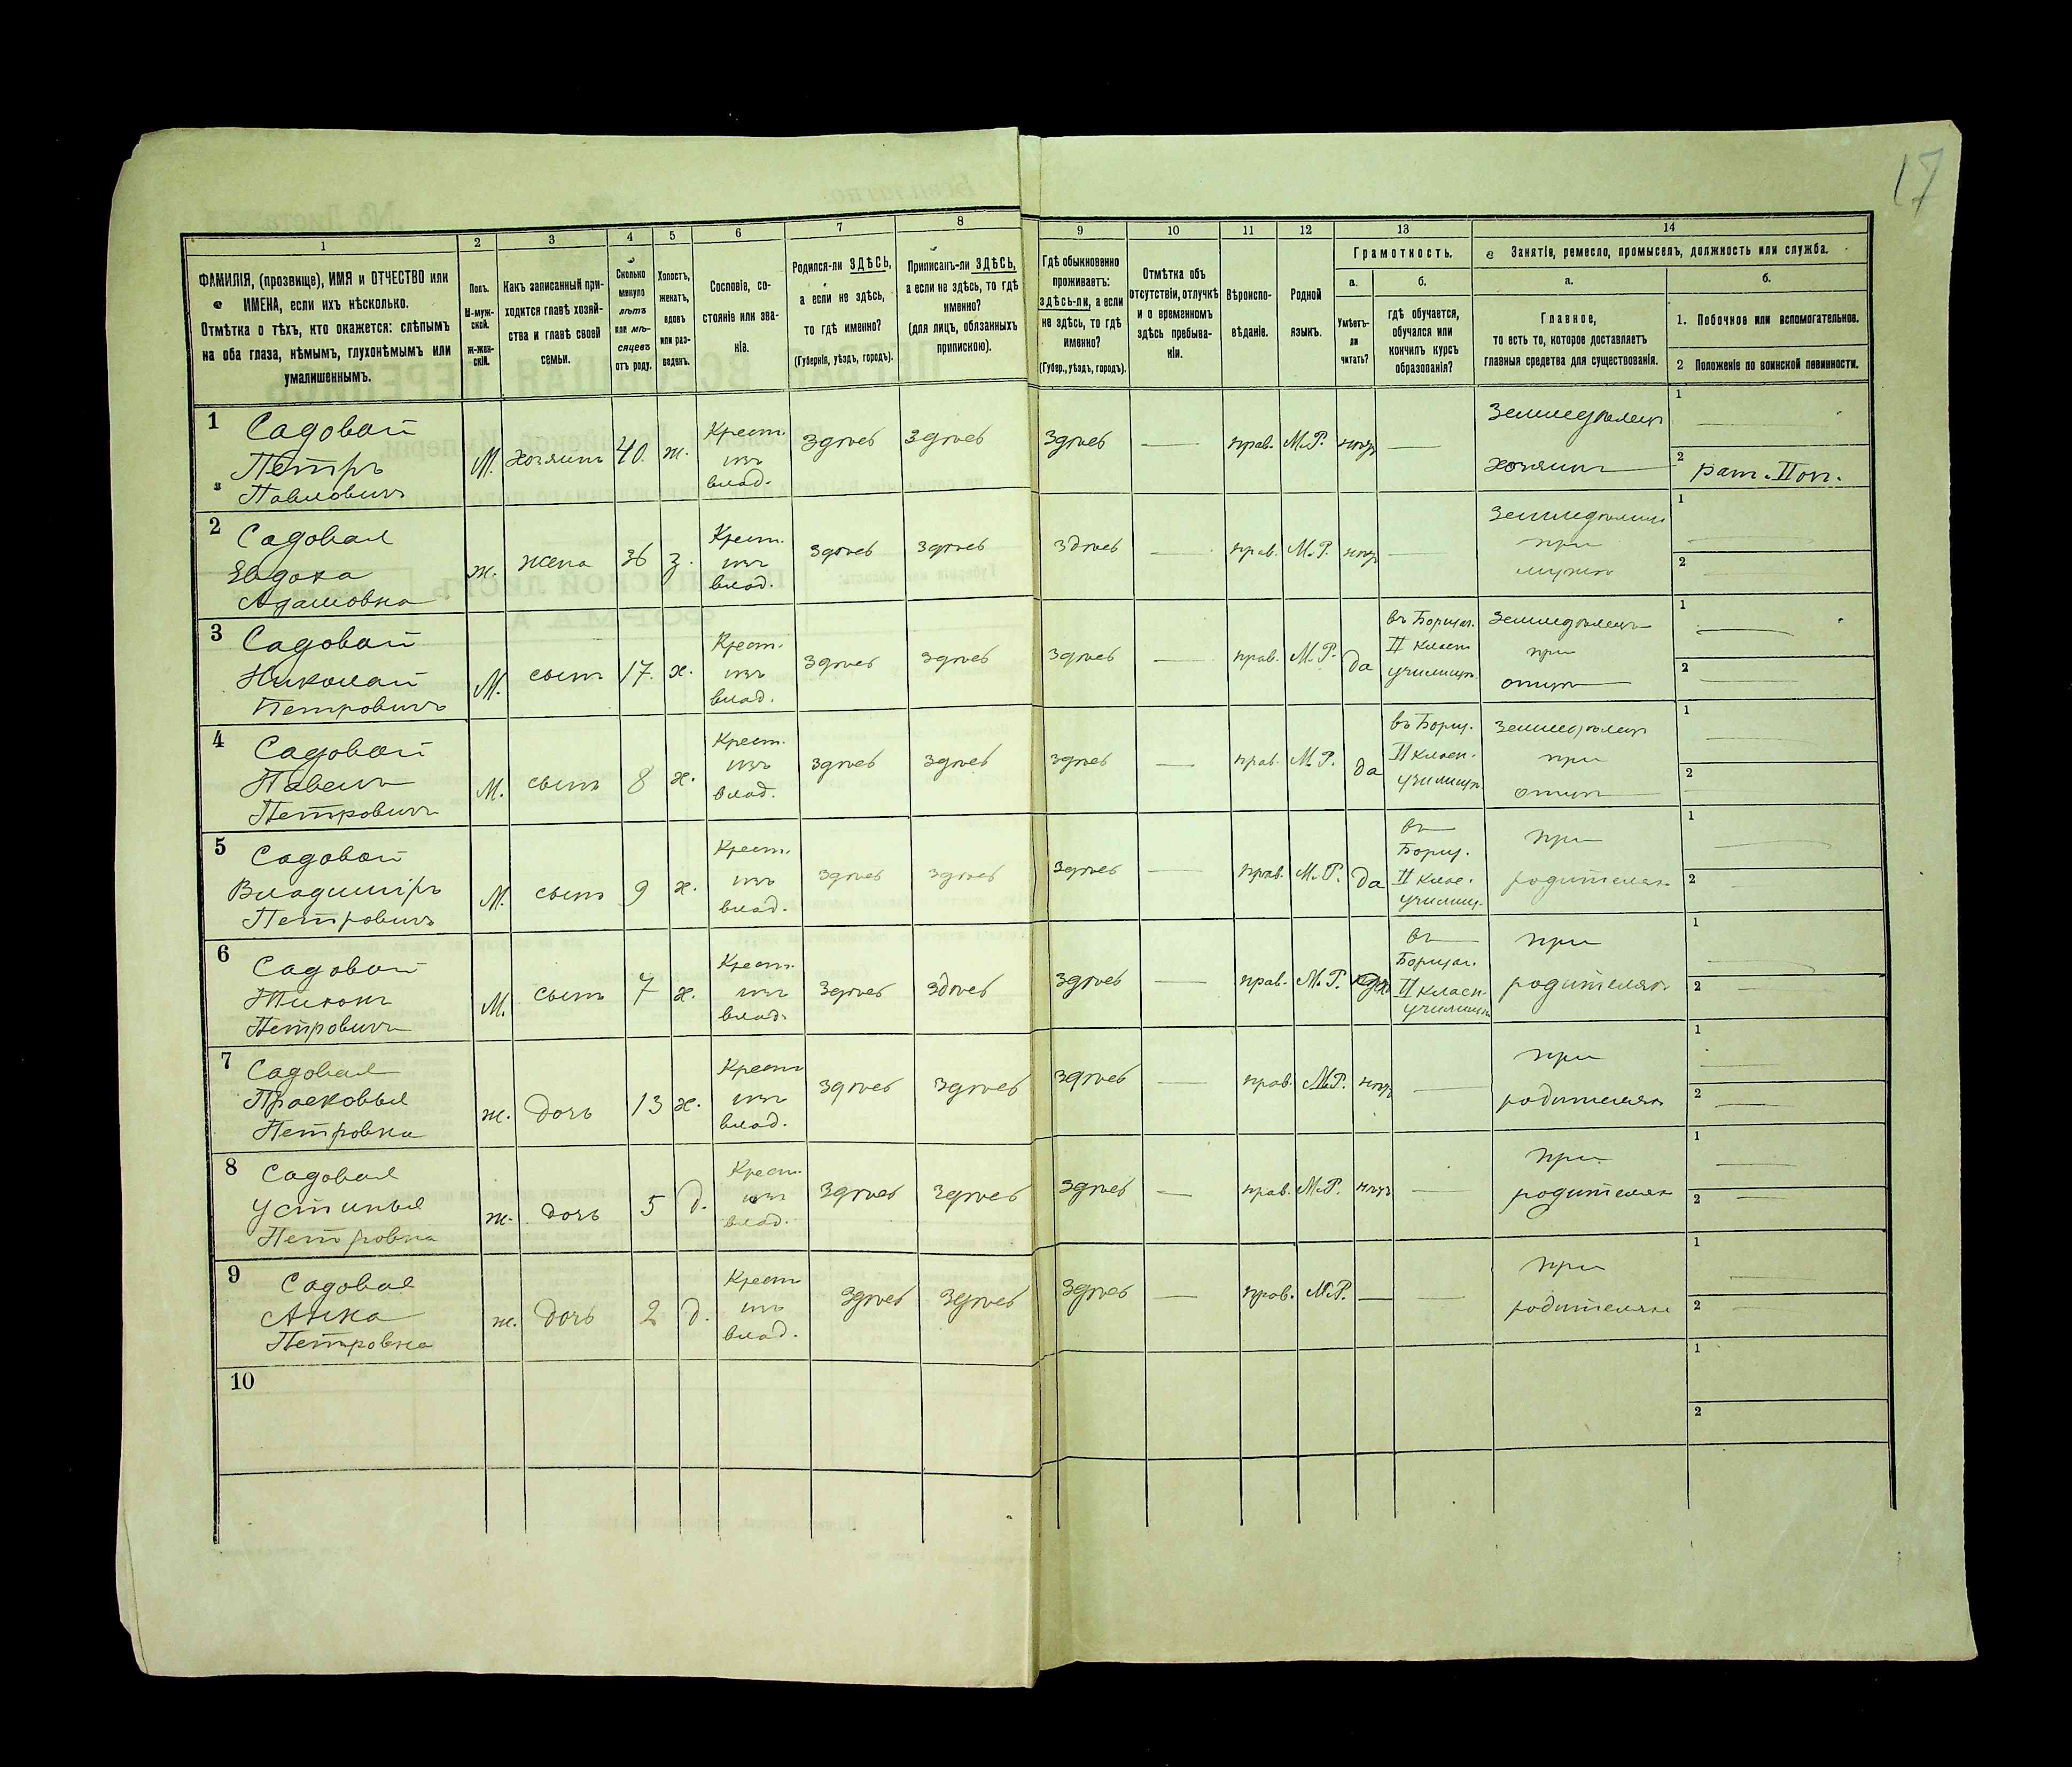 17
1 2 3 4 5 6 7 8 9 10 11 12 13 14
ФАМИЛІЯ, (прозвище), ИМЯ и ОТЧЕСТВО или
ИМЕНА, если ихъ нѣсколько.
Отмѣтка о тѣхъ, кто окажется: слѣпымъ
на оба глаза, нѣмымъ, глухонѣмымъ или
умалишеннымъ.
Полъ.
М-муж-
ской.
Ж-жен-
скій.
Какъ записанный при-
ходится главѣ хозяй-
ства и главѣ своей
семьи.
Сколько
минуло
лѣтъ
или мѣ-
сяцевъ
отъ роду.
Холостъ,
женатъ,
вдовъ
или раз-
веденъ.
Сословіе, со-
стояніе или зва-
ніе.
Родился-ли ЗДѢСЬ,
а если не здѣсь,
то гдѣ именно?
(Губернія, уѣздъ, городъ).
Приписанъ-ли ЗДѢСЬ,
а если не здѣсь, то гдѣ
именно?
(для лицъ, обязанныхъ
припискою).
Гдѣ обыкновенно
проживаетъ:
здѣсь-ли, а если
не здѣсь, то гдѣ
именно?
(Губер., уѣздъ, городъ).
Отмѣтка объ
отсутствіи, отлучкѣ
и о временномъ
здѣсь пребыва-
ніи.
Вѣроиспо-
вѣданіе.
Родной
языкъ.
Грамотность.
а.
Умѣетъ-
ли
читать?
б.
гдѣ обучается,
обучался или
кончилъ курсъ
образованія?
Занятіе, ремесло, промыселъ, должность или служба.
а.
Главное,
то есть то, которое доставляетъ
главныя средства для существованія.
б.
1. Побочное или вспомогательное.
2 Положеніе по воинской повинности.
1 Садовой
Петръ
Павловичъ
М. хозяинъ 40. ж.
Крест.
изъ
влад.
здѣсь здѣсь здѣсь — прав. М.Р. нѣтъ —
Земледѣлецъ
хозяинъ
1
2 рат. II оп.
2 Садовая
Евдока
Адамовна
ж. жена 36 з.
Крест.
изъ
влад.
здѣсь здѣсь здѣсь — прав. М.Р. нѣтъ —
Земледѣлецъ
при
мужѣ
1
2
3 Садовой
Николай
Петровичъ
М. сынъ 17. х.
Крест.
изъ
влад.
здѣсь здѣсь здѣсь — прав. М.Р. да
въ Борщаг.
II класн
училищѣ
Земледѣлецъ
при
отцѣ
1
2
4 Садовой
Павелъ
Петровичъ
М. сынъ 8 х.
Крест.
изъ
влад.
здѣсь здѣсь здѣсь — прав. М.Р. да
въ Борщ.
II класн.
училищѣ
Земледѣлецъ
при
отцѣ
1
2
5 Садовой
Владиміръ
Петровичъ
М. сынъ 9 х.
Крест.
изъ
влад.
здѣсь здѣсь здѣсь — прав. М.Р. да
въ
Борщ.
II клас.
училищ.
при
родителяхъ
1
2
6 Садовой
Петровичъ
М. сынъ 7 х.
Крест.
изъ
влад.
здѣсь здѣсь здѣсь — прав. М.Р.
въ
Борщаг.
II класн
училищѣ
при
родителяхъ
1
2
7 Садовая
Прасковья
Петровна
ж. дочь 13 х.
Крест
изъ
влад.
здѣсь здѣсь здѣсь — прав. М.Р. нѣтъ —
при
родителяхъ
1
2
8 Садовая
Устинья
Петровна
ж. дочь 5 д.
Крест.
изъ
влад.
здѣсь здѣсь здѣсь — прав. М.Р. нѣтъ —
при
родителяхъ
1
2
9 Садовая
Анна
Петровна
ж. дочь 2 д.
Крест
изъ
влад.
здѣсь здѣсь здѣсь — прав. М.Р. — —
при
родителяхъ
1
2
10
1
2